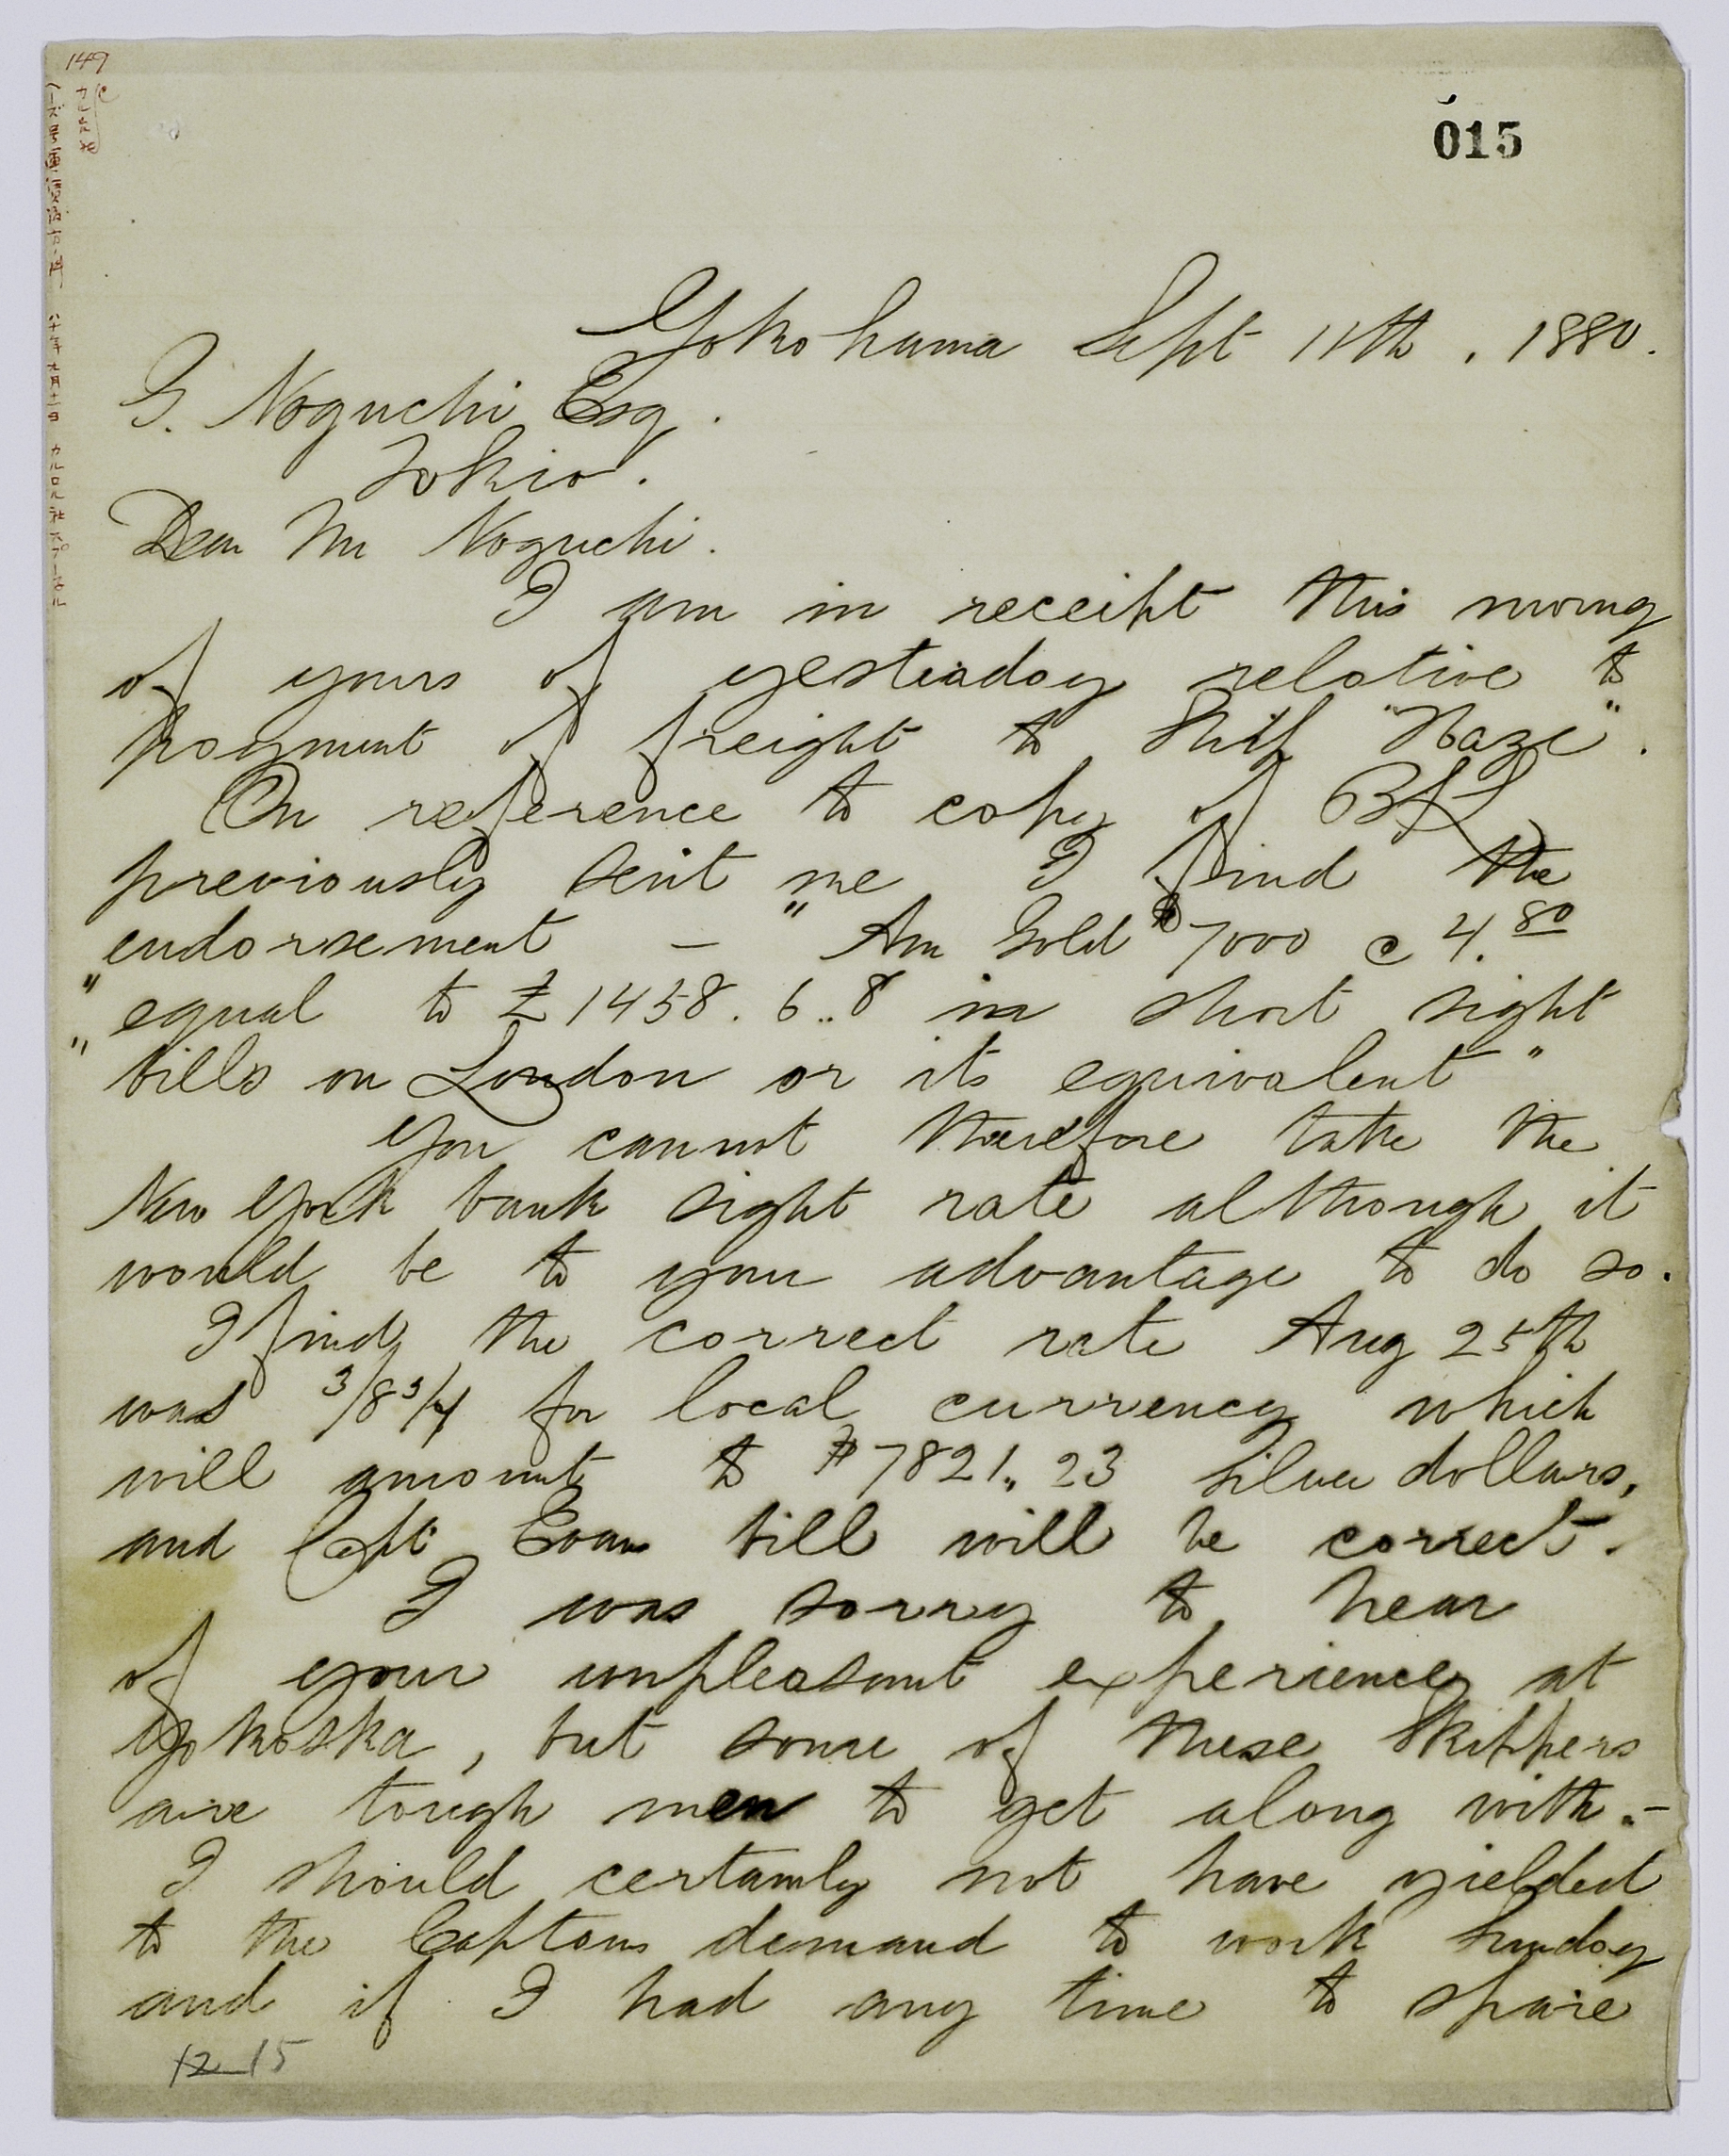 149
015
Yokohama Sept 11th, 1880.
G. Noguchi Esq.
Tokio.
Dear Mr Noguchi.
I am in receipt this morng
of yours of yesterday relative to
payment of freight to Ship "Naze".
On reference to copy of B/L
previously sent me I find the
endorsement — "Am Gold $7000 @ 4.80
"equal to £1458.6..8 in short sight
"bills on London or its equivalent"
You cannot therefore take the
New York bank sight rate although it
would be to your advantage to do so.
I find the correct rate Aug 25th
was 3/8 3/4 for local currency which
will amount to $7821.. 23 silver dollars,
and Capt Evans bill will be correct.
I was sorry to hear
of your unpleasant experience at
Yokoska, but some of these skippers
are tough men to get along with.-
I should certainly not have yielded
to the Captains demand to work Sunday
and if I had any time to spare
12 15